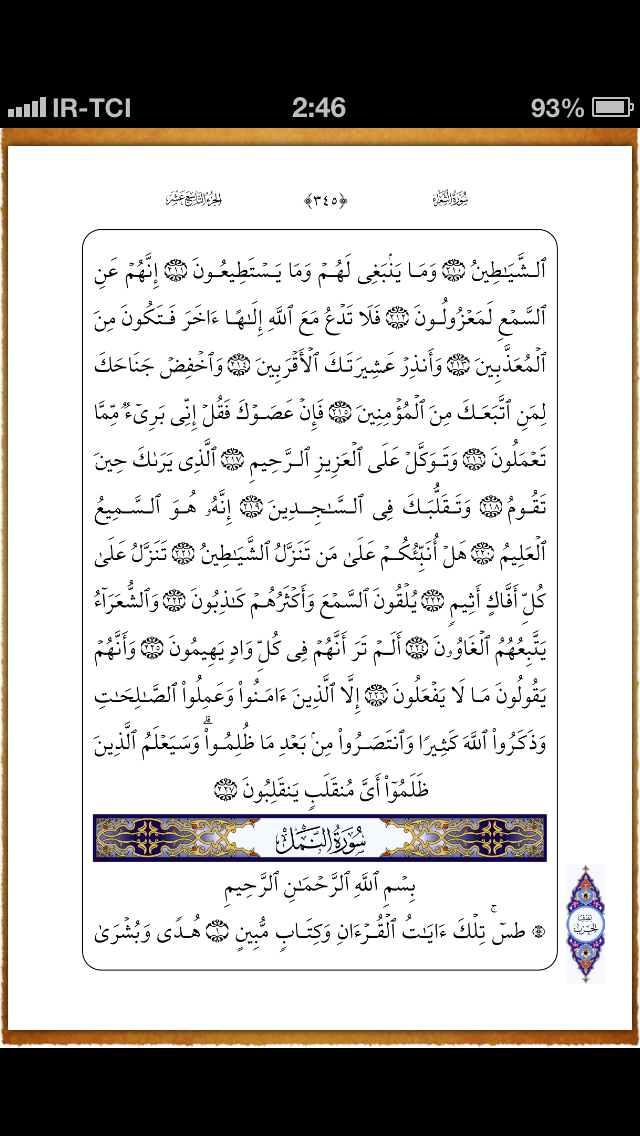 IR-TCI 2:46 93%
سُورَةُ الشُّعَرَاء ﴿٣٤٥﴾ الجُزءُ التَّاسِعَ عَشَر
ٱلشَّيَـٰطِينُ ٢١٠ وَمَا يَنۢبَغِى لَهُمۡ وَمَا يَسۡتَطِيعُونَ ٢١١ إِنَّهُمۡ عَنِ
ٱلسَّمۡعِ لَمَعۡزُولُونَ ٢١٢ فَلَا تَدۡعُ مَعَ ٱللَّهِ إِلَـٰهًا ءَاخَرَ فَتَكُونَ مِنَ
ٱلۡمُعَذَّبِينَ ٢١٣ وَأَنذِرۡ عَشِيرَتَكَ ٱلۡأَقۡرَبِينَ ٢١٤ وَٱخۡفِضۡ جَنَاحَكَ
لِمَنِ ٱتَّبَعَكَ مِنَ ٱلۡمُؤۡمِنِينَ ٢١٥ فَإِنۡ عَصَوۡكَ فَقُلۡ إِنِّى بَرِىٓءٌ مِّمَّا
تَعۡمَلُونَ ٢١٦ وَتَوَكَّلۡ عَلَى ٱلۡعَزِيزِ ٱلرَّحِيمِ ٢١٧ ٱلَّذِى يَرَىٰكَ حِينَ
تَقُومُ ٢١٨ وَتَقَلُّبَكَ فِى ٱلسَّـٰجِدِينَ ٢١٩ إِنَّهُۥ هُوَ ٱلسَّمِيعُ
ٱلۡعَلِيمُ ٢٢٠ هَلۡ أُنَبِّئُكُمۡ عَلَىٰ مَن تَنَزَّلُ ٱلشَّيَـٰطِينُ ٢٢١ تَنَزَّلُ عَلَىٰ
كُلِّ أَفَّاكٍ أَثِيمٍ ٢٢٢ يُلۡقُونَ ٱلسَّمۡعَ وَأَكۡثَرُهُمۡ كَـٰذِبُونَ ٢٢٣ وَٱلشُّعَرَآءُ
يَتَّبِعُهُمُ ٱلۡغَاوُۥنَ ٢٢٤ أَلَمۡ تَرَ أَنَّهُمۡ فِى كُلِّ وَادٍ يَهِيمُونَ ٢٢٥ وَأَنَّهُمۡ
يَقُولُونَ مَا لَا يَفۡعَلُونَ ٢٢٦ إِلَّا ٱلَّذِينَ ءَامَنُواْ وَعَمِلُواْ ٱلصَّـٰلِحَـٰتِ
وَذَكَرُواْ ٱللَّهَ كَثِيرًا وَٱنتَصَرُواْ مِنۢ بَعۡدِ مَا ظُلِمُواْۗ وَسَيَعۡلَمُ ٱلَّذِينَ
ظَلَمُوٓاْ أَىَّ مُنقَلَبٍ يَنقَلِبُونَ ٢٢٧
سُورَةُ النَّمۡلِ
بِسۡمِ ٱللَّهِ ٱلرَّحۡمَـٰنِ ٱلرَّحِيمِ
۞ طسٓۚ تِلۡكَ ءَايَـٰتُ ٱلۡقُرۡءَانِ وَكِتَابٍ مُّبِينٍ ١ هُدًى وَبُشۡرَىٰ